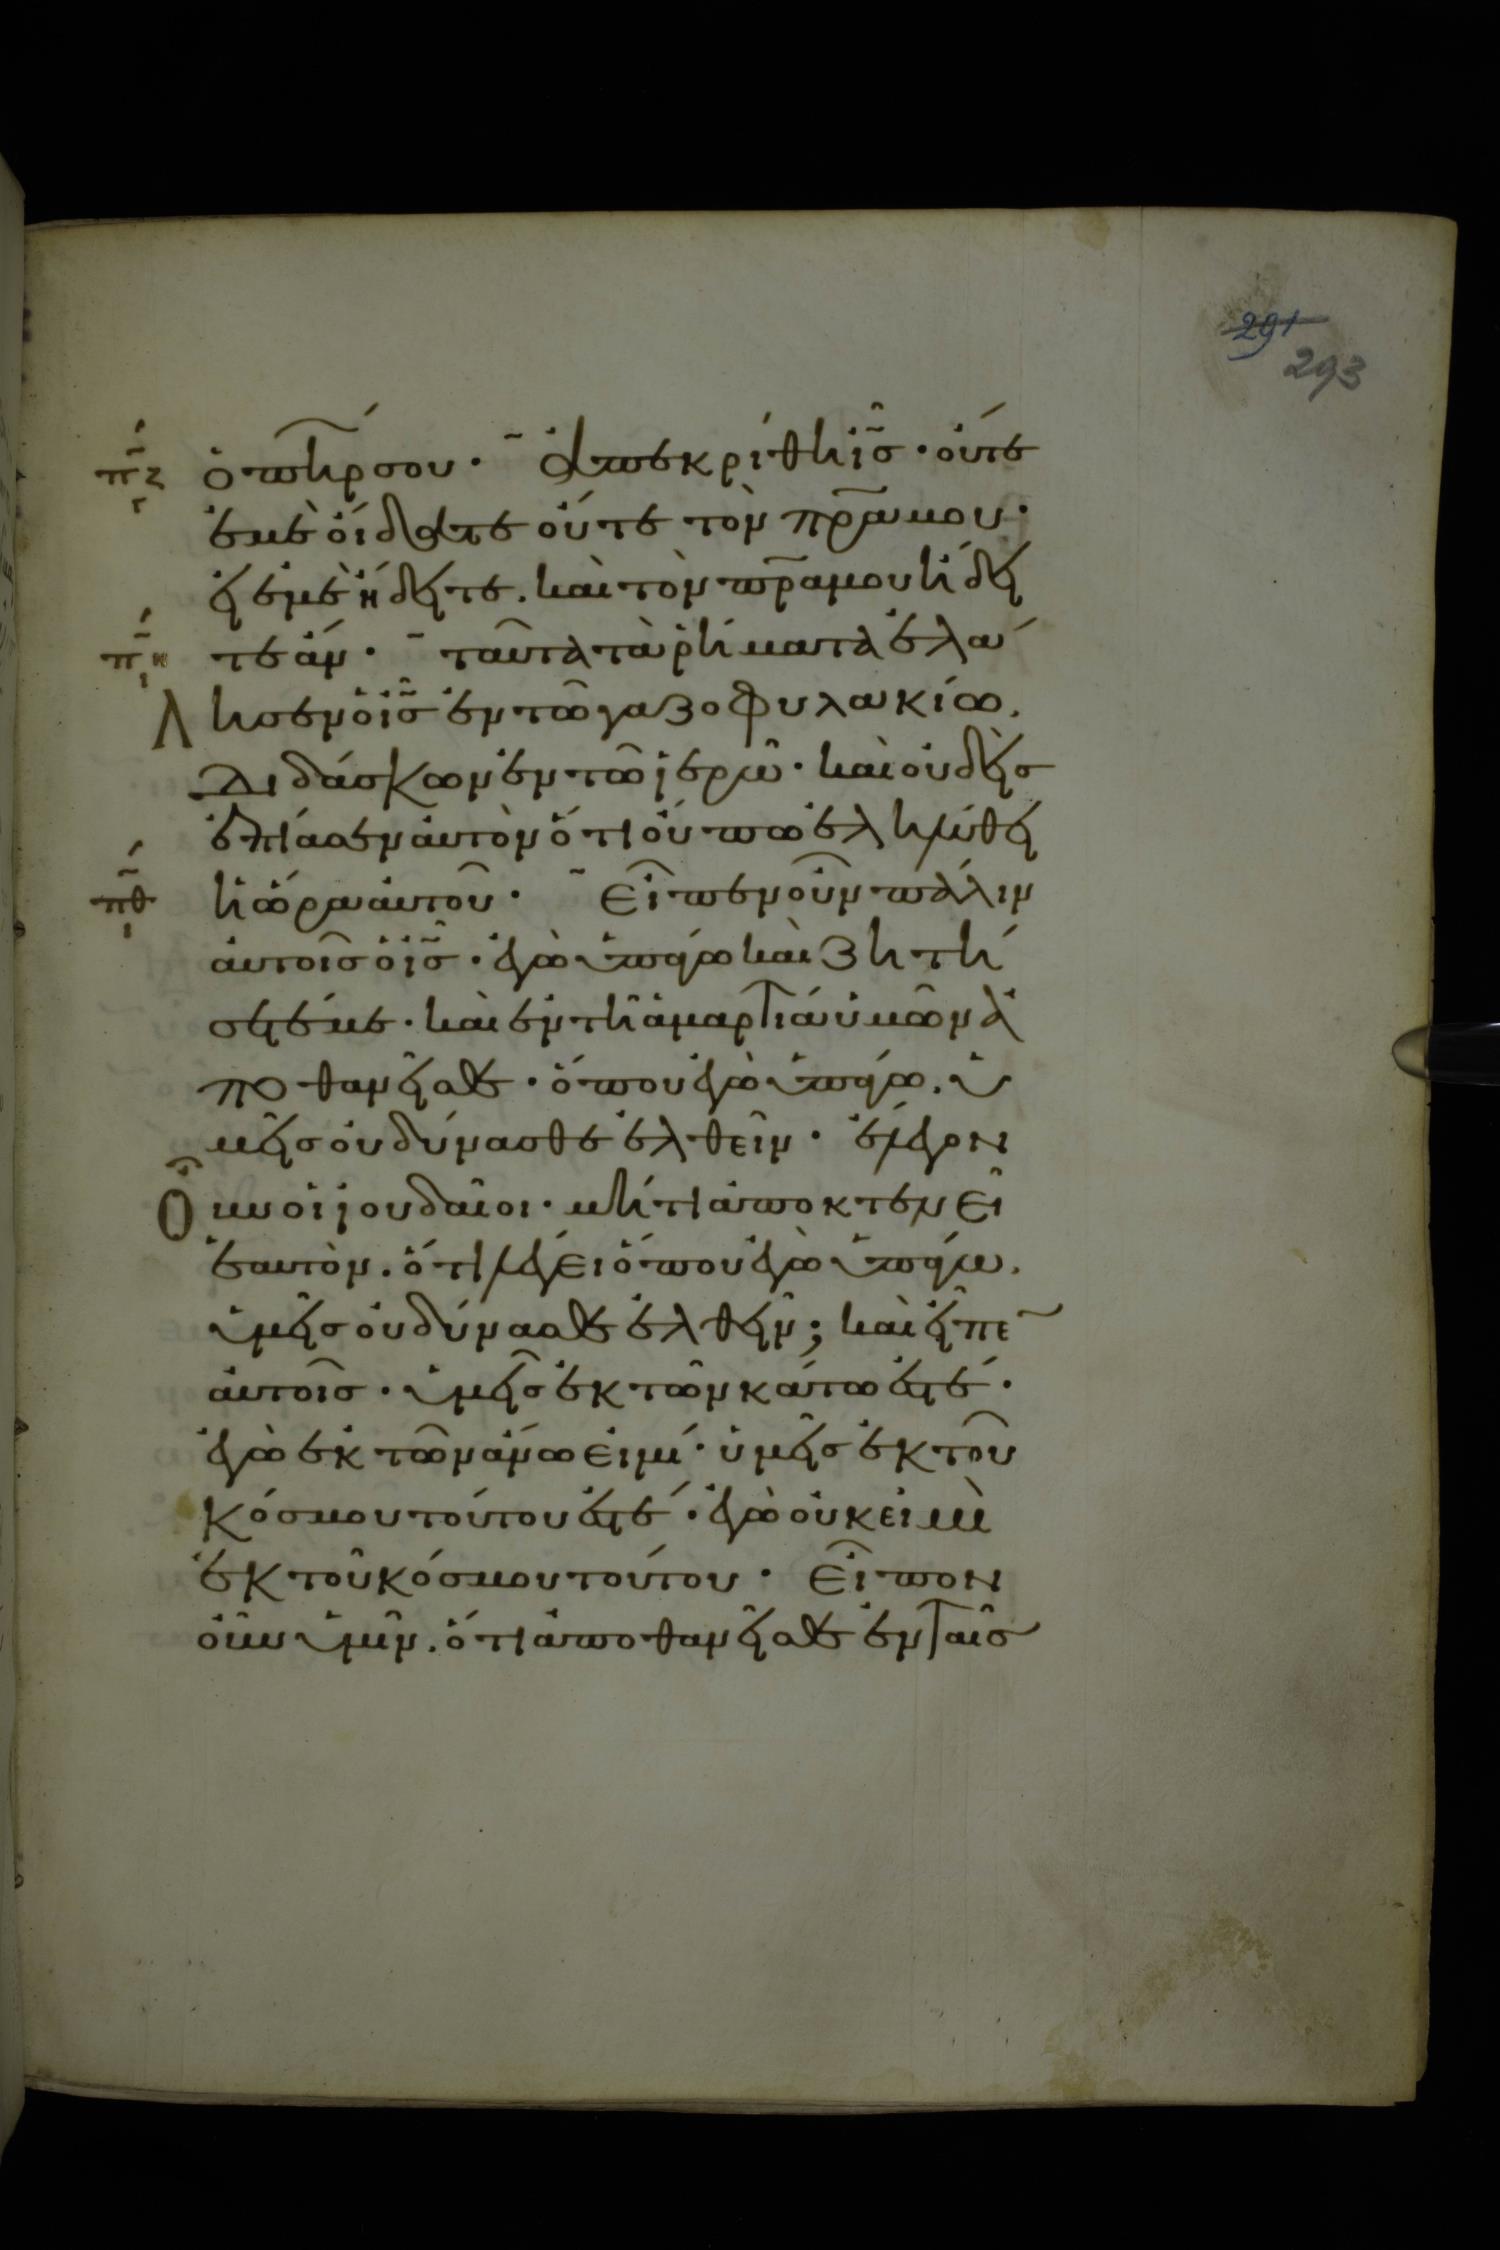 291
293
πζ ὁ πηρ σου · ἀπεκρίθη ἰς · οὔτε
ἐμὲ οἴδατε οὔτε τὸν πρα μου ·
εἰ ἐμὲ ἤδειτε . καὶ τὸν πρα μου ἤδει
πη τε ἄν · ταῦτα τὰ ῥήματα ἐλά
λησεν ὁ ἰς ἐν τῶ γαζοφυλακίω .
διδάσκων ἐν τῶ ἱερῶ · καὶ οὐδεὶς
ἐπίασεν αὐτὸν ὅτι οὔπω ἐληλύθει
πθ ἡ ὥρα αὐτοῦ · Εἶπεν οὖν πάλιν
αὐτοῖς ὁ ἰς · ἐγὼ ὑπάγω καὶ ζητή
σετέ με · καὶ ἐν τῆ ἁμαρτία ὑμῶν ἀ
ποθανεῖσθε · ὅπου ἐγὼ ὑπάγω . ὑ
μεῖς οὐ δύνασθε ἐλθεῖν · ἔλεγον
οὖν οἱ ἰουδαῖοι · μήτι ἀποκτενεῖ
ἑαυτὸν . ὅτι λέγει ὅπου ἐγὼ ὑπάγω .
ὑμεῖς οὐ δύνασθε ἐλθεῖν ; καὶ εἶπε
αὐτοῖς · ὑμεῖς ἐκ τῶν κάτω ἐστέ ·
ἐγὼ ἐκ τῶν ἄνω εἰμί · ὑμεῖς ἐκ τοῦ
κόσμου τούτου ἐστέ · ἐγὼ οὐκ εἰμὶ
ἐκ τοῦ κόσμου τούτου · Εἶπον
οὖν ὑμῖν . ὅτι ἀποθανεῖσθε ἐν ταῖς